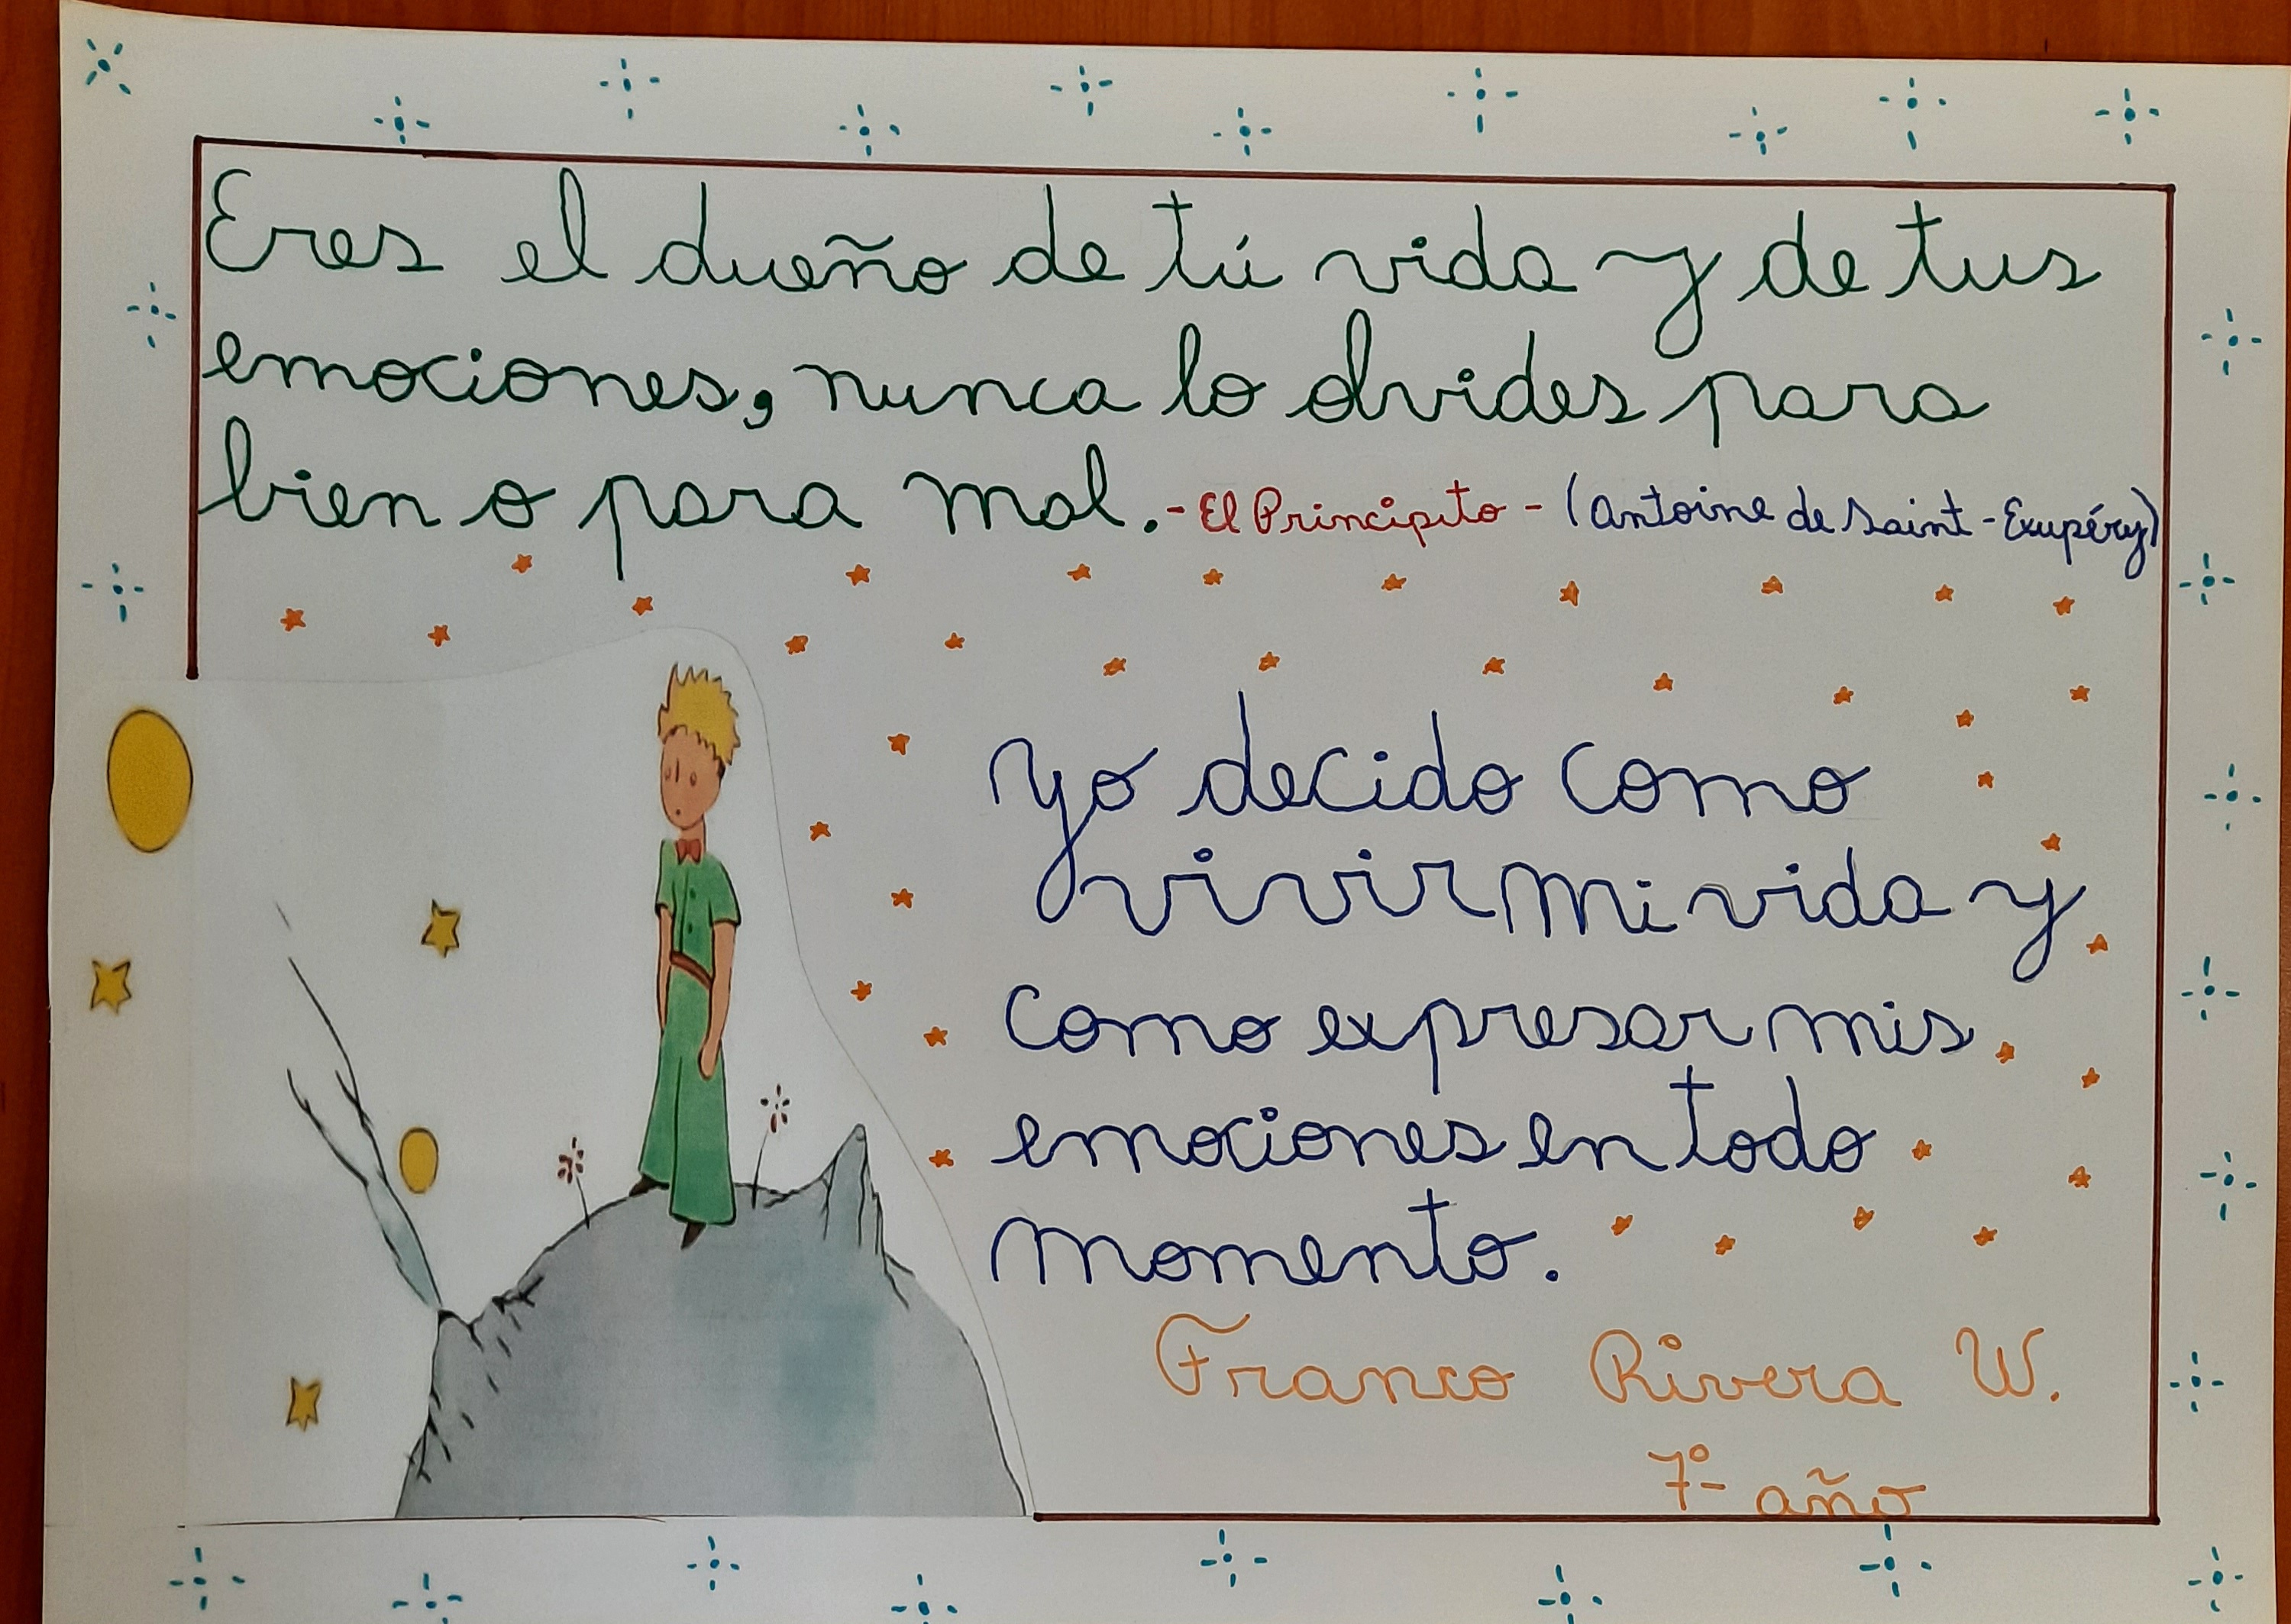 Eres el dueño de tú vida y de tus
emociones, nunca lo olvides para
bien o para mal. - El Principito - (Antoine de Saint - Exupéry)
Yo decido como
vivir mi vida y
como expresar mis
emociones en todo
momento.
Franco Rivera W.
7º año